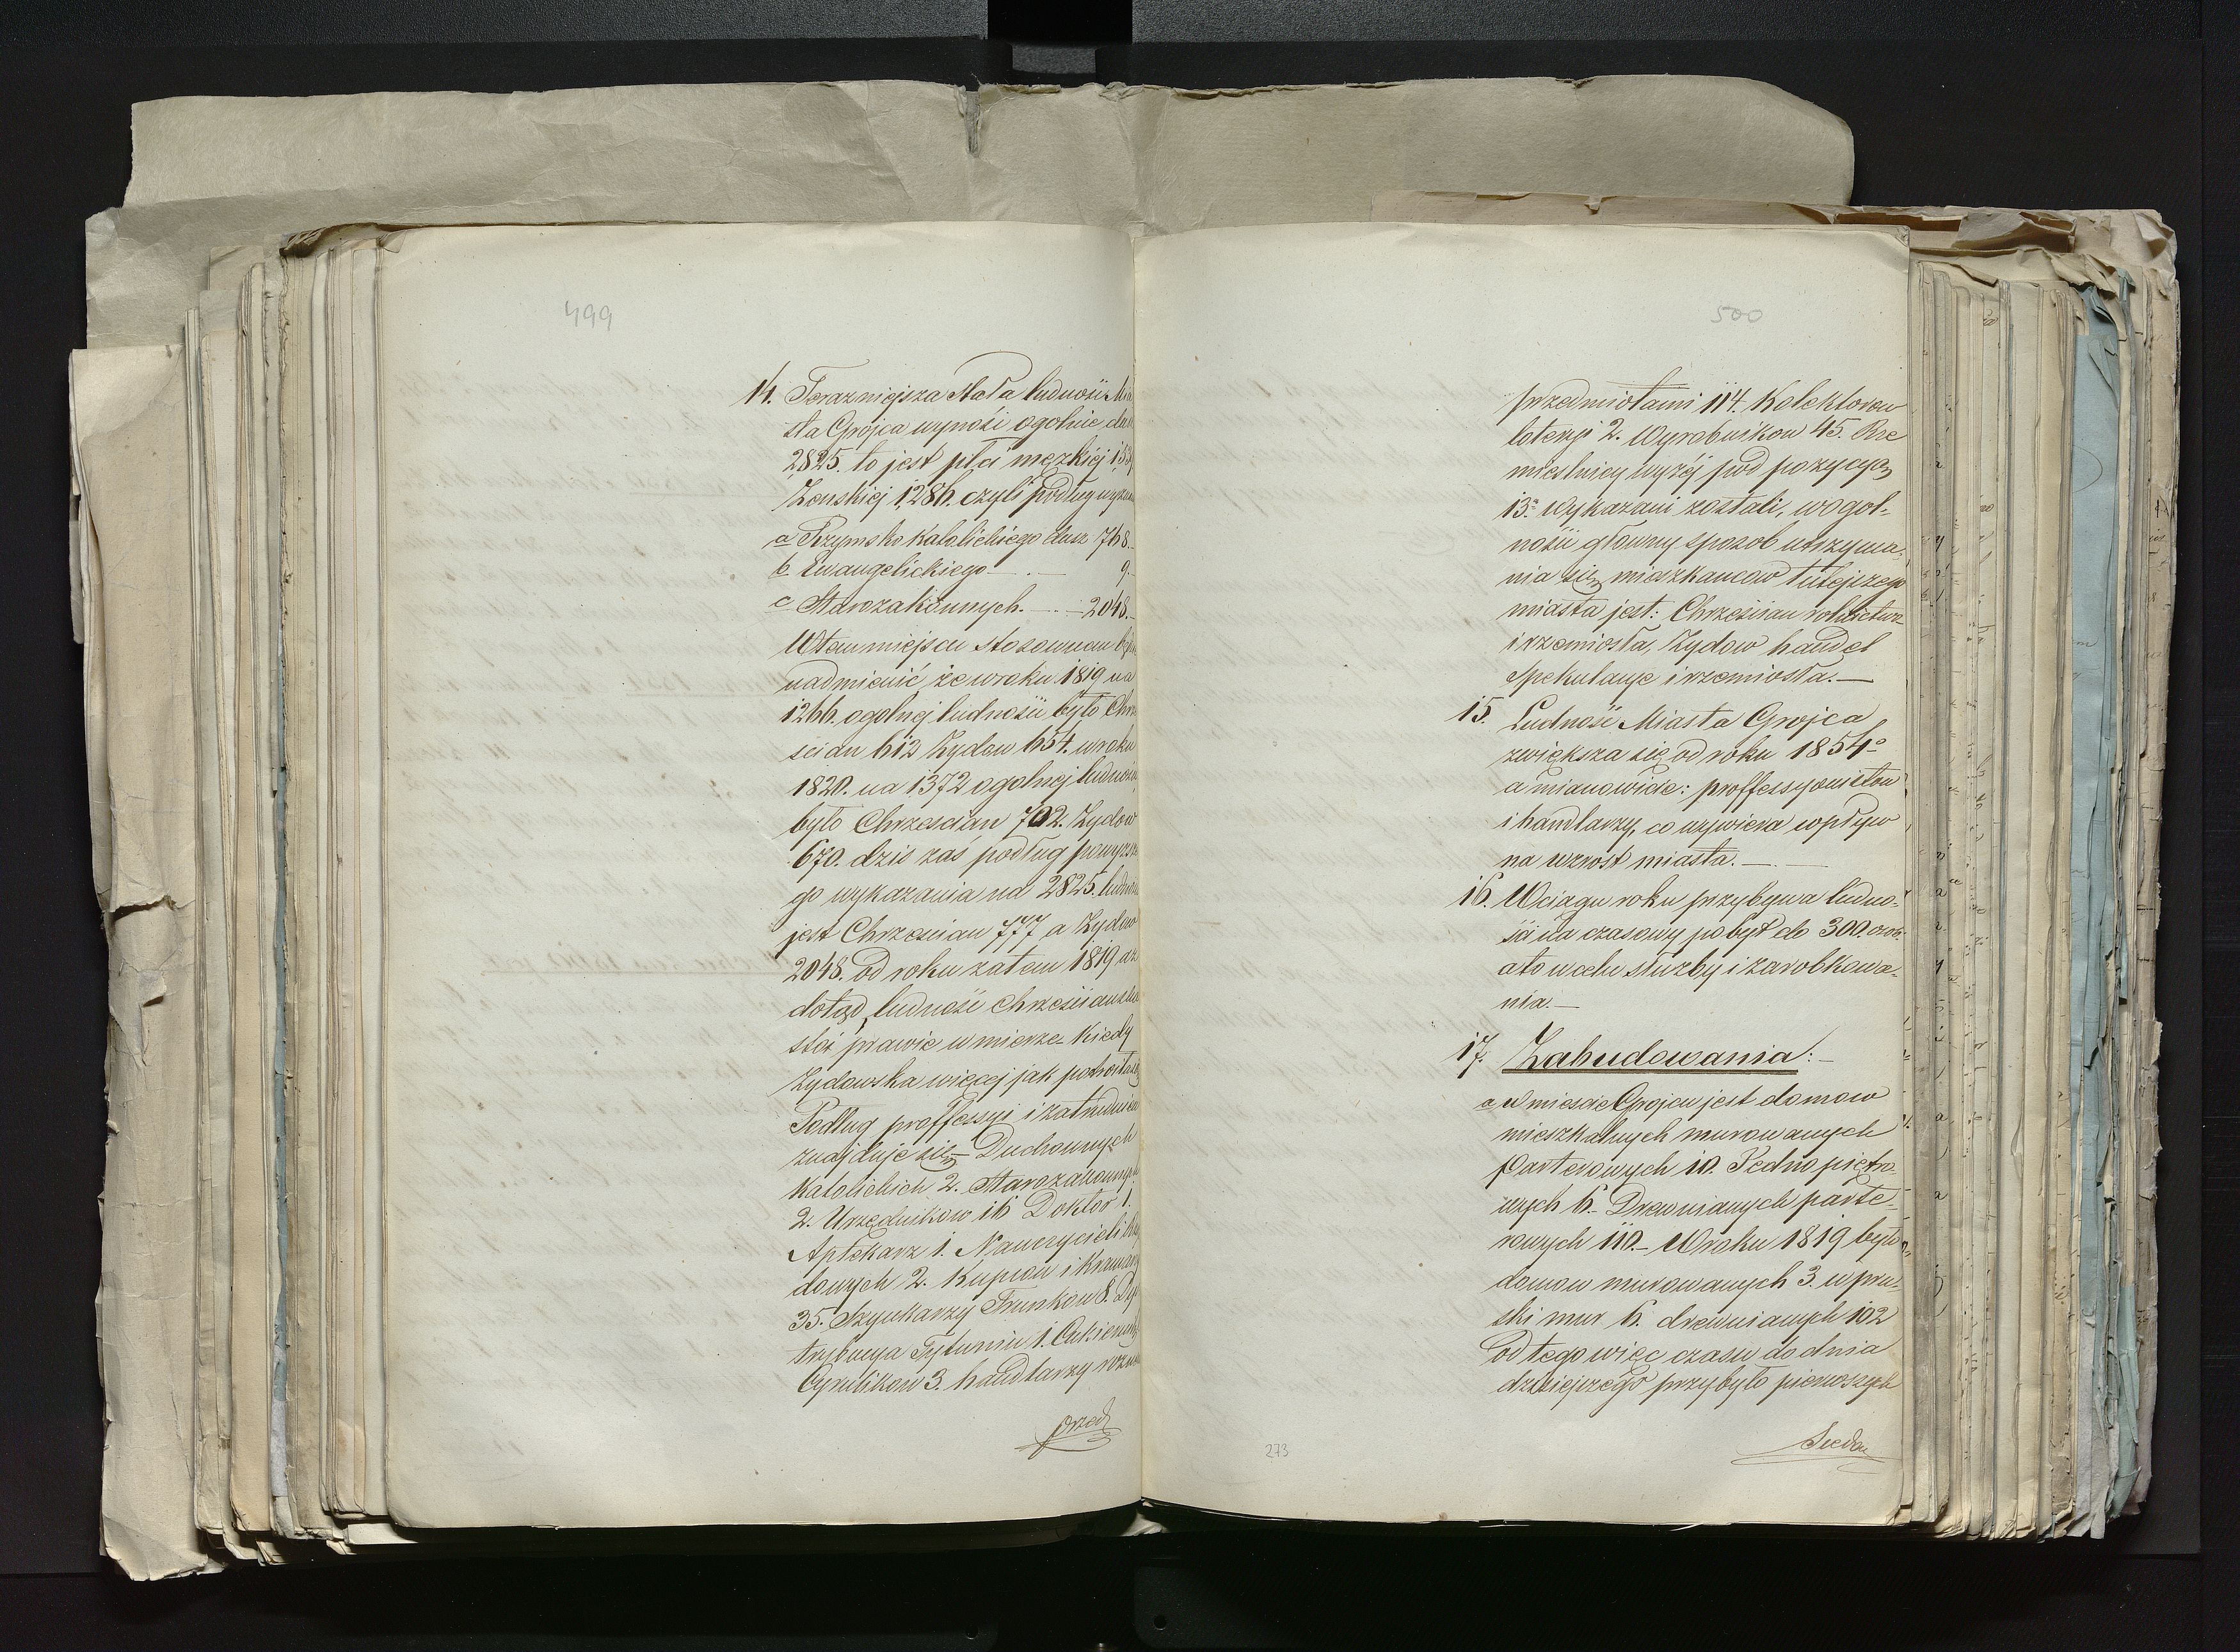 499
14. Terazniejsza stała ludność Mia
sta Grójca wynosi ogolnie dusz
2825. to jest płci męzkiej 153
Zenskiej 1286. czyli podług wyzna
a Rzymsko Katolickiego dusz 768.
b Ewangelickiego — . — 9.
c Starozakonnych. — . — 2048.
W tem miejscu stosownem będ
nadmienić że w roku 1819 na
1266. ogolnej ludności było Chrze
scian 612 Żydow 654. w roku
1820. na 1372 ogolnej ludności
było Chrzescian 702. Zydow
670. dzis zaś podług powyzsze
go wykazania na 2825. ludności
jest Chrzescian 777 a Zydow
2048. od roku zatem 1819 az
dotąd ludność chrześciańska
stoi prawie w mierze kiedy
Zydowska więcej jak potroiła się
Podług proffessyi i zatrudnien
znajduje się — Duchownych
Katolickich 2. Starozakonnych
2. Urzędnikow 16 Doktor 1.
Aptekarz 1. Nauczycieli
dowych 2. Kupcow i Kramarzy
35. Szynkarzy Trunkow 8. Dy
trybucya Tytuniu 1. Cukiernik
Cyrulikow 3. handlarzy rozn
przed
500
przedmiotami 114. Kolektorow
loteryi 2. Wyrobnikow 45. Rze
mieslnicy wyżej pod pozycyą
13ą wykazani zostali, w ogól-
ności główny sposob utrzyma-
nia się mieszkancow tutejszego
miasta jest: Chrześcian rolnictwo
i rzemiosła, Zydow handel
spekulacye i rzemiosła. —
15. Ludność Miasta Grojca
zwiększa się od roku 1854o
a mianowicie: proffessyonistow
i handlarzy, co wywiera wpływ
na wzrost miasta. —
16. W ciągu roku przybywa ludno-
ści na czasowy pobyt do 300. osob.
a to w celu służby i zarobkowa-
nia. —
17. Zabudowania: —
a W mieście Grojcu jest domow
mieszkalnych murowanych
parterowych 10. Jedno piętro-
wych 6. Drewnianych parte-
rowych 110. — W roku 1819 było
domow murowanych 3. w pru-
ski mur 6. drewnianych 102
Od tego więc czasu do dnia
dzisiejszego przybyło pierwszych
273